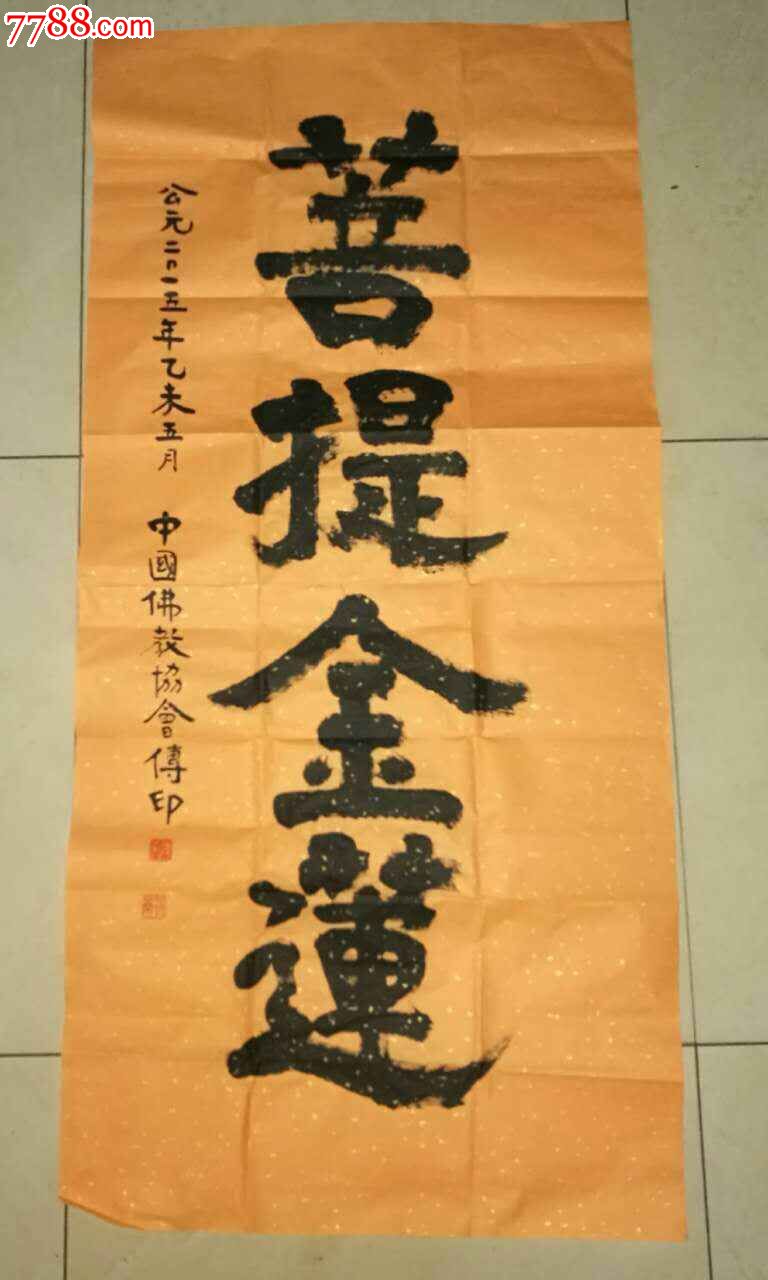 7788.com
菩提金蓮
公元二〇一五年乙未五月 中國佛教協會傳印